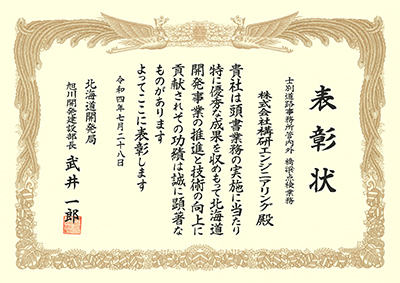 表彰状
士別道路事務所管内外 橋梁点検業務
株式会社構研エンジニアリング 殿
貴社は頭書業務の実施に当たり
特に優秀な成果を収めもって北海道
開発事業の推進と技術の向上に
貢献されその功績は誠に顕著な
ものがあります
よってここに表彰します
令和四年七月二十八日
北海道開発局
旭川開発建設部長 武井一郎